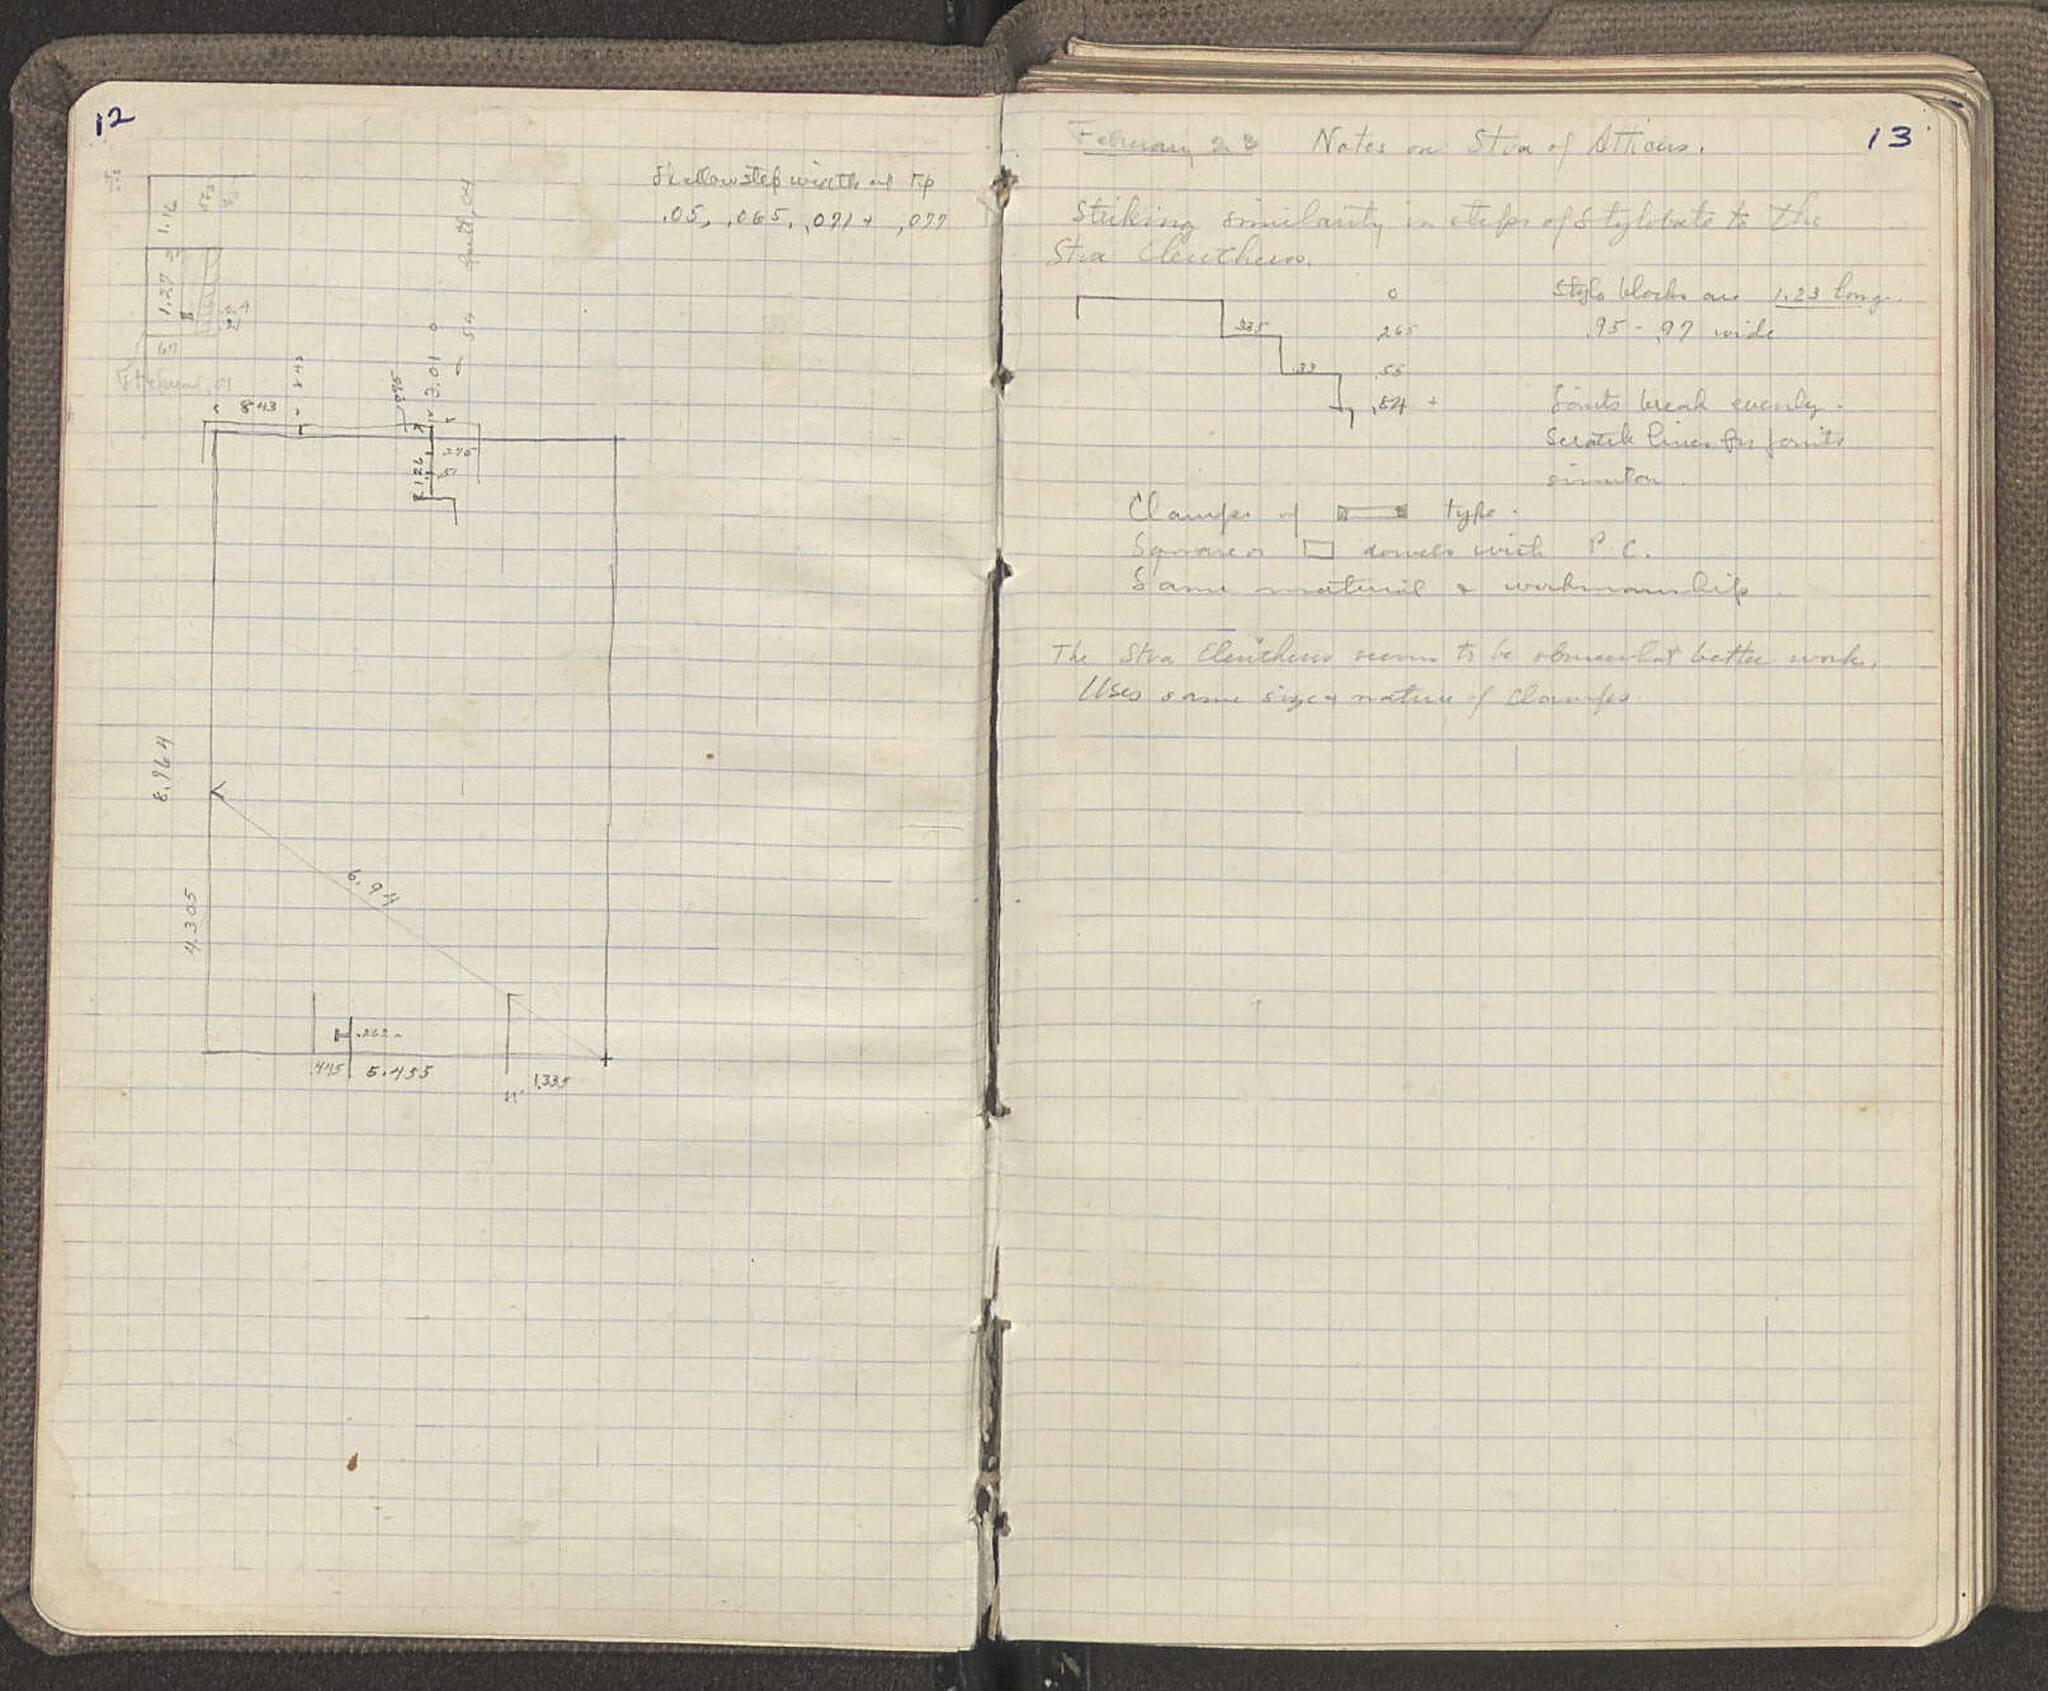 12
1.16
1.27
Shallow step width at top
.05, .065, .071+ ,.077
3.01
0
54
843
.275
.51
1.26
8.964
4.305
6.94
.262-
.475
5.455
1.335
13
February 23 Notes on Stoa of Atticus.
Striking similarity in steps of Stylobate to the
Stoa Eleutherios.
0
Stylo blocks are 1.23 long.
.335
.265
.95 - .97 wide
.33
.55
.84 +
Joints break evenly.
Scratch lines for joints
similar.
Clamps of type.
Square or dowels with P.C.
Same material & workmanship.
The Stoa Eleutherios seems to be somewhat better work.
Uses same size & nature of clamps.